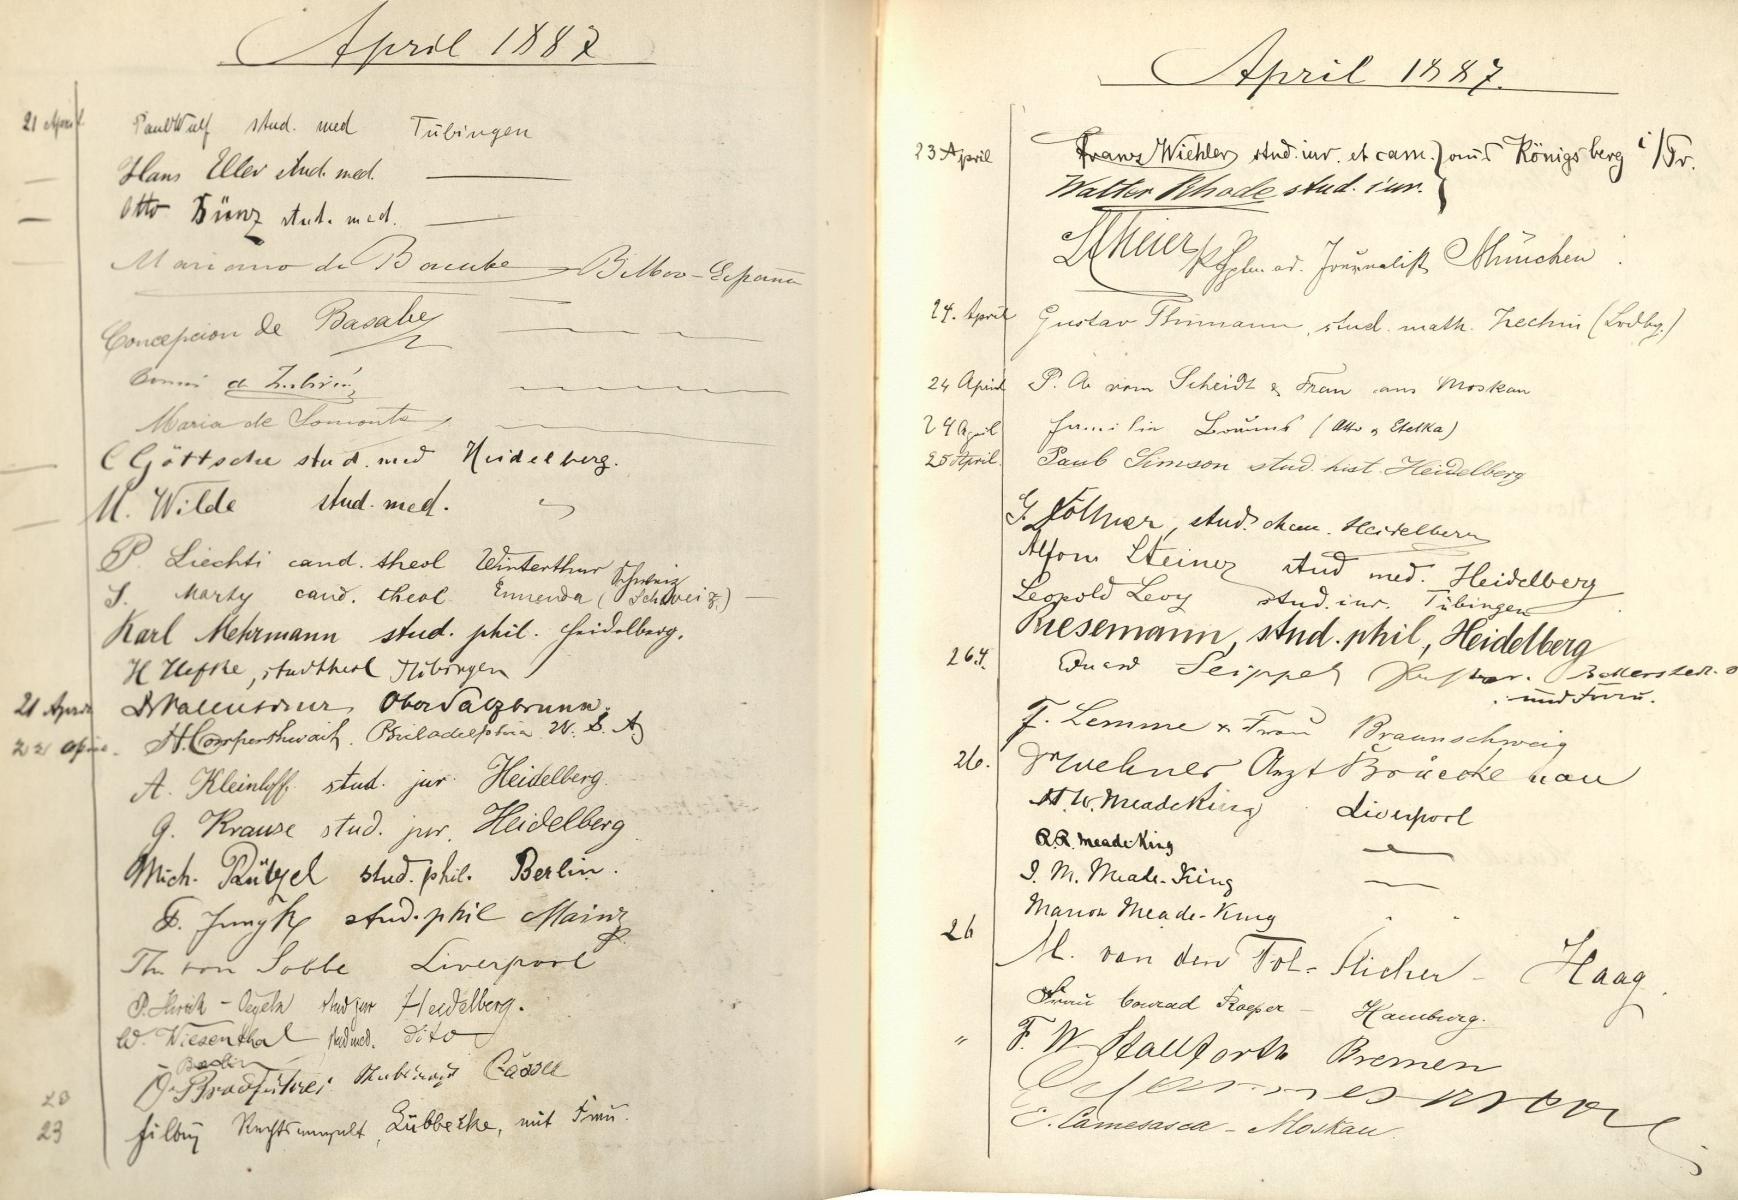 April 1887
21 April Paul Wulf stud. med Tübingen
Hans Eller stud. med.
Otto Künz stud. med.
Mariano de Bilbao - España
Concepcion de Basabe
de
Maria de
C Göttsche stud. med Heidelberg.
M. Wilde stud. med. "
P. Liechti cand. theol Winterthur Schweiz
S. Marty cand. theol Ennenda (Schweiz.)
Karl Mehrmann stud. phil. Heidelberg.
H Hefke, stud theol Tübingen
21 April Dr Obersalzbrunn.
22 April. H. Cowperthwait. Philadelphia U. S. A
A. Kleinhoff. stud. jur. Heidelberg.
G. Krause stud. jur. Heidelberg
Mich. Rützel stud. phil. Berlin.
F. Jungk stud. phil Mainz
Th. von Sobbe Liverpool
P. stud jur Heidelberg.
W. Wiesenthal stud med. dito
Berlin
Dr Cassel
23 Rechtsanwalt, Lübbecke, mit Frau.
April 1887.
23 April Franz Wiehler stud. iur. et cam. } aus Königsberg i/Pr.
Walter Rhode stud. iur.
Journalist München
24. April Gustav Thurmann, stud. math. Zechin (Ldbg.)
24 April P. A vom Scheidt & Frau aus Moskau
24 April Familie (Otto & Etelka)
25 April. Paul Simson stud. hist. Heidelberg
G. Höltner, stud. chem. Heidelberg
Alfons Steiner stud med. Heidelberg
Leopold Levy stud. iur. Tübingen
Riesemann, stud. phil, Heidelberg
26.4. Eduard Seippel
und Frau.
F. Lemme & Frau Braunschweig
26. Dr Wehner Arzt Brückenau
H. W. Meade-King Liverpool
R.R. Meade-King
I. M. Meade-King
Marion Meade-King " "
26 M. van den Tol-Slicher - Haag.
Frau Conrad Roeper - Hamburg.
" F. W. Stallforth Bremen
E. Camesasca - Moskau.